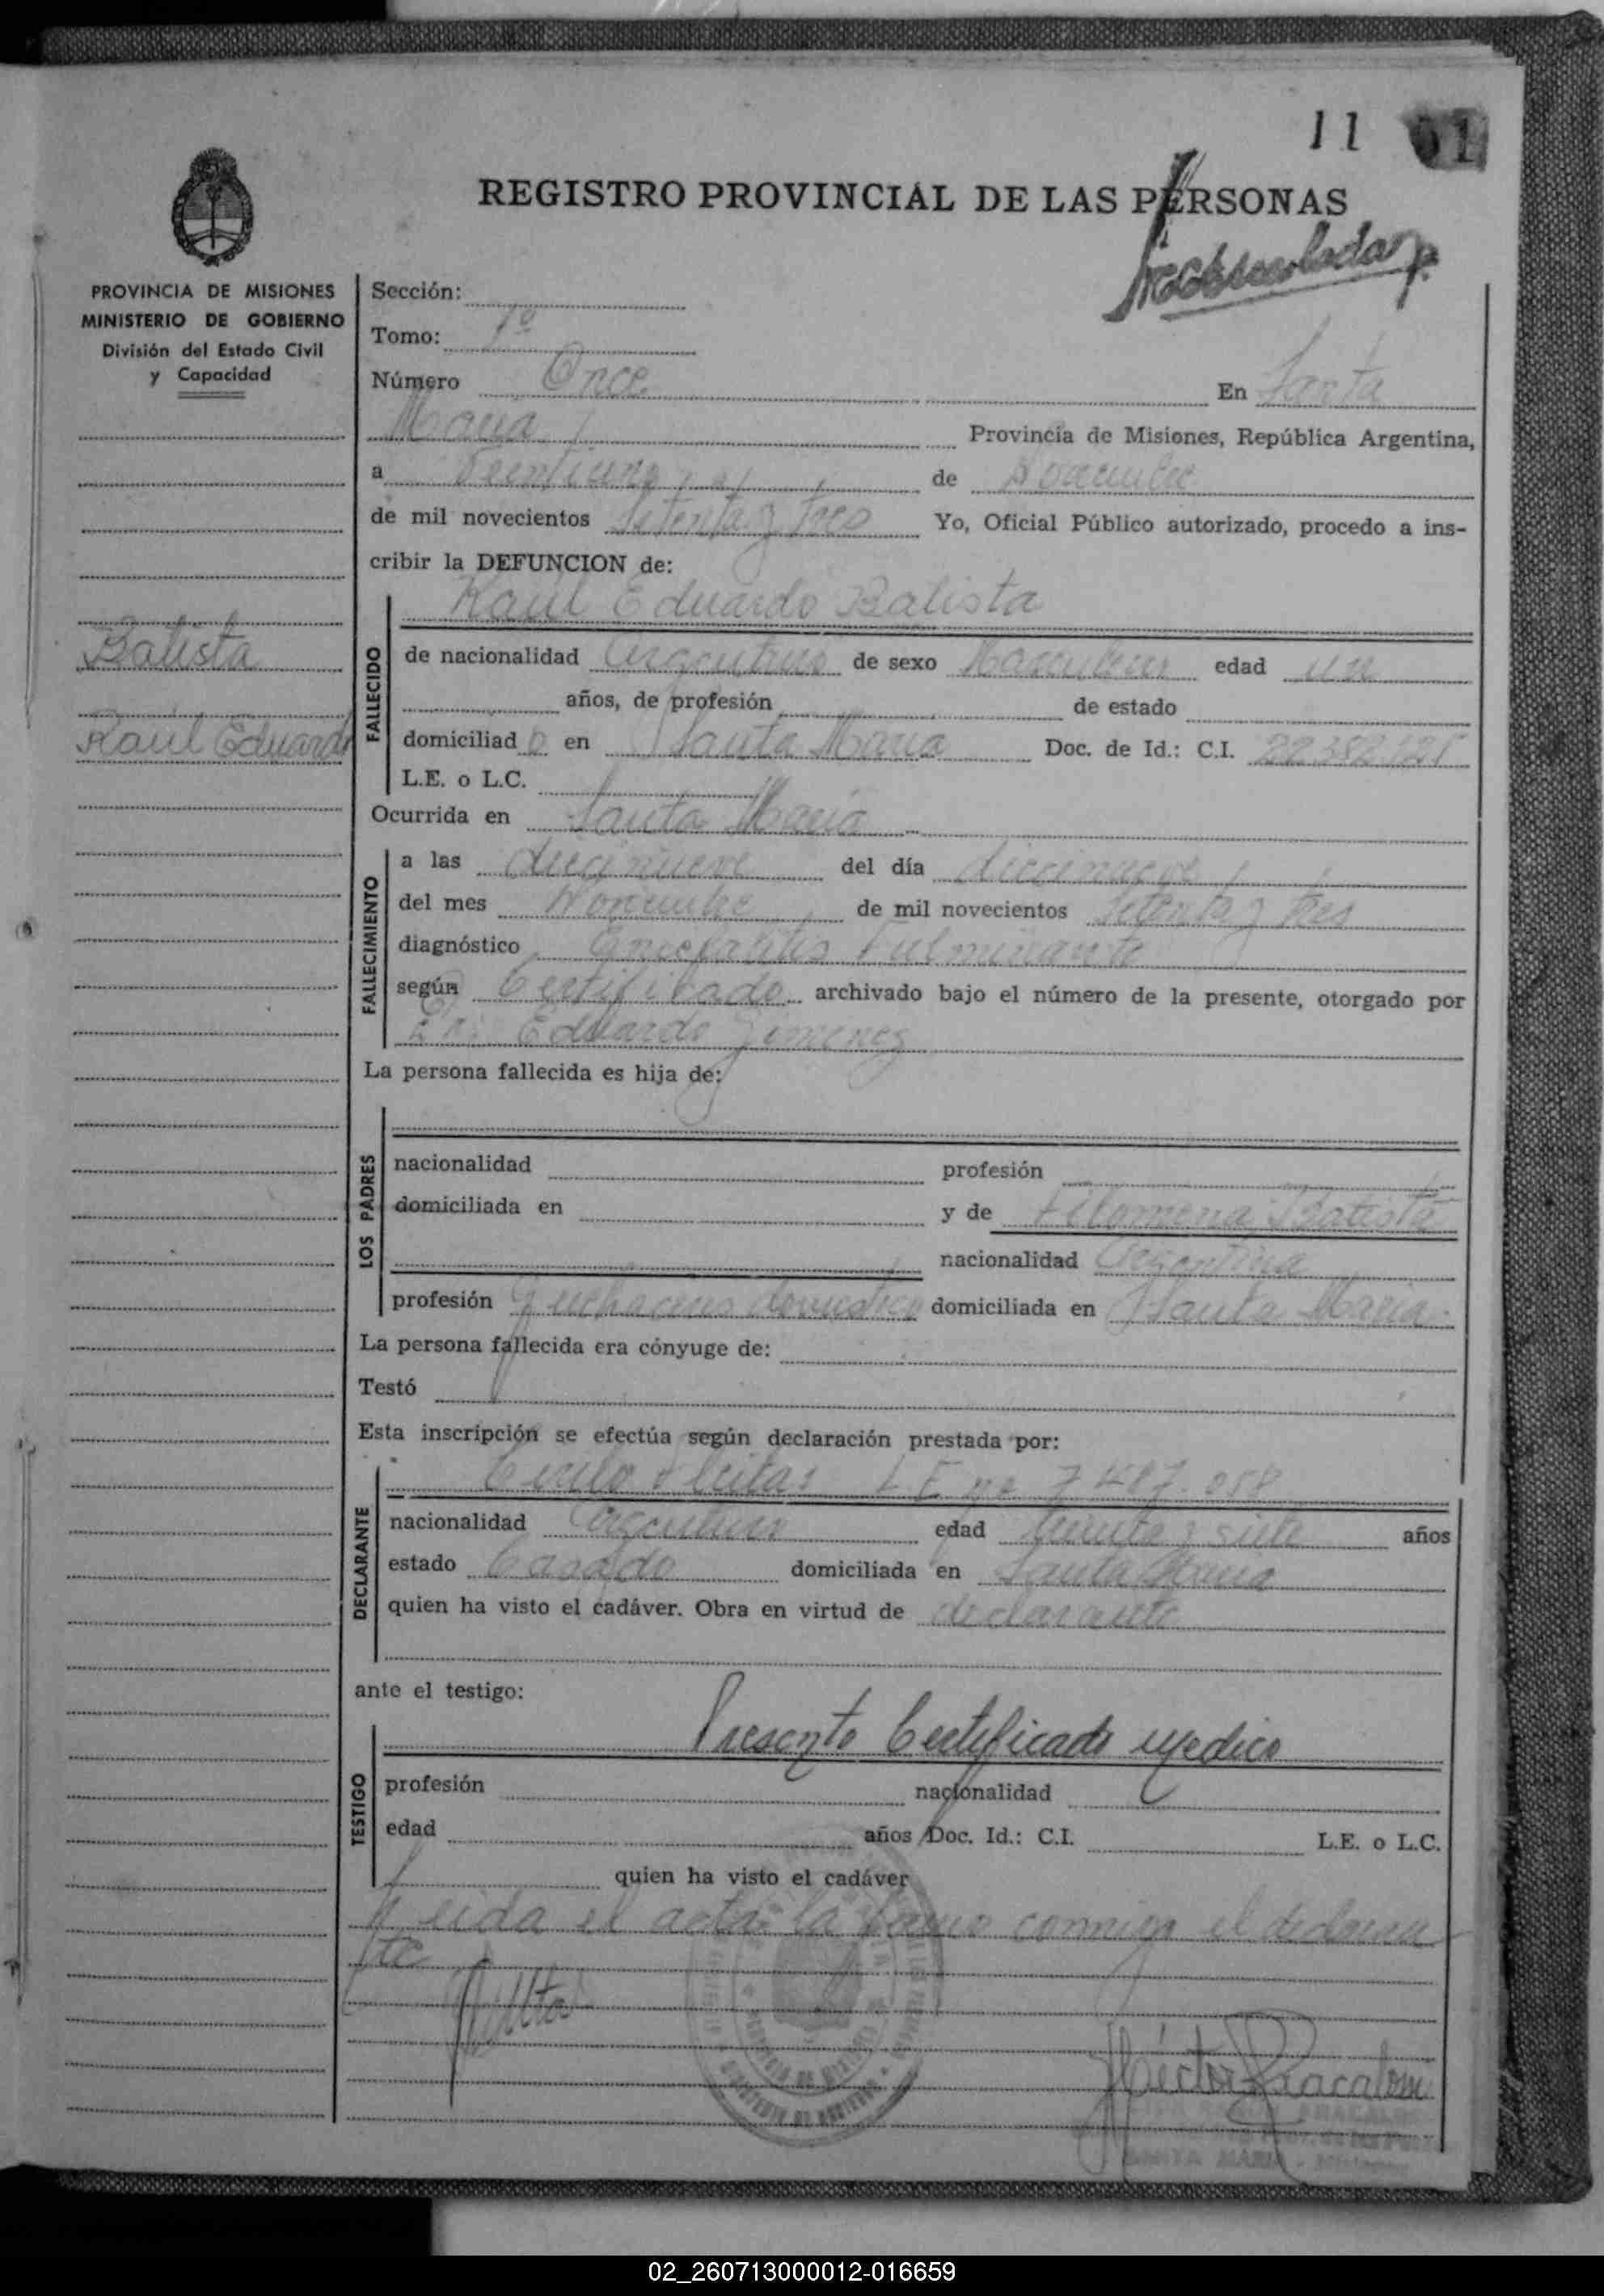 11 01
REGISTRO PROVINCIAL DE LAS PERSONAS
PROVINCIA DE MISIONES
MINISTERIO DE GOBIERNO
División del Estado Civil
y Capacidad
Batista
Raúl Eduardo
Sección:
Tomo: 1º
Número Once En Santa
Maria Provincia de Misiones, República Argentina,
a Veintiuno de Noviembre
de mil novecientos Setenta y tres Yo, Oficial Público autorizado, procedo a ins-
cribir la DEFUNCION de:
Raúl Eduardo Batista
FALLECIDO
de nacionalidad Argentino de sexo Masculino edad un
años, de profesión de estado
domiciliado en Santa Maria Doc. de Id.: C.I.
L.E. o L.C.
Ocurrida en Santa Maria
FALLECIMIENTO
a las diecinueve del día diecinueve
del mes Noviembre de mil novecientos setenta y tres
diagnóstico Encefalitis Fulminante
según Certificado archivado bajo el número de la presente, otorgado por
Eduardo Gimenez
La persona fallecida es hija de:
LOS PADRES
nacionalidad profesión
domiciliada en y de Filomena Batista
nacionalidad Argentina
profesión quehaceres domestico domiciliada en Santa Maria
La persona fallecida era cónyuge de:
Testó
Esta inscripción se efectúa según declaración prestada por:
Cirilo Fleitas L E no 7 487.058
DECLARANTE
nacionalidad Argentino edad años
estado Casado domiciliada en Santa Maria
quien ha visto el cadáver. Obra en virtud de declarante
ante el testigo:
Presento Certificado medico
TESTIGO
profesión nacionalidad
edad años Doc. Id.: C.I. L.E. o L.C.
quien ha visto el cadáver
Leida el acta la firma conmigo el declaran
te
SANTA MARIA - Misiones
02_260713000012-016659